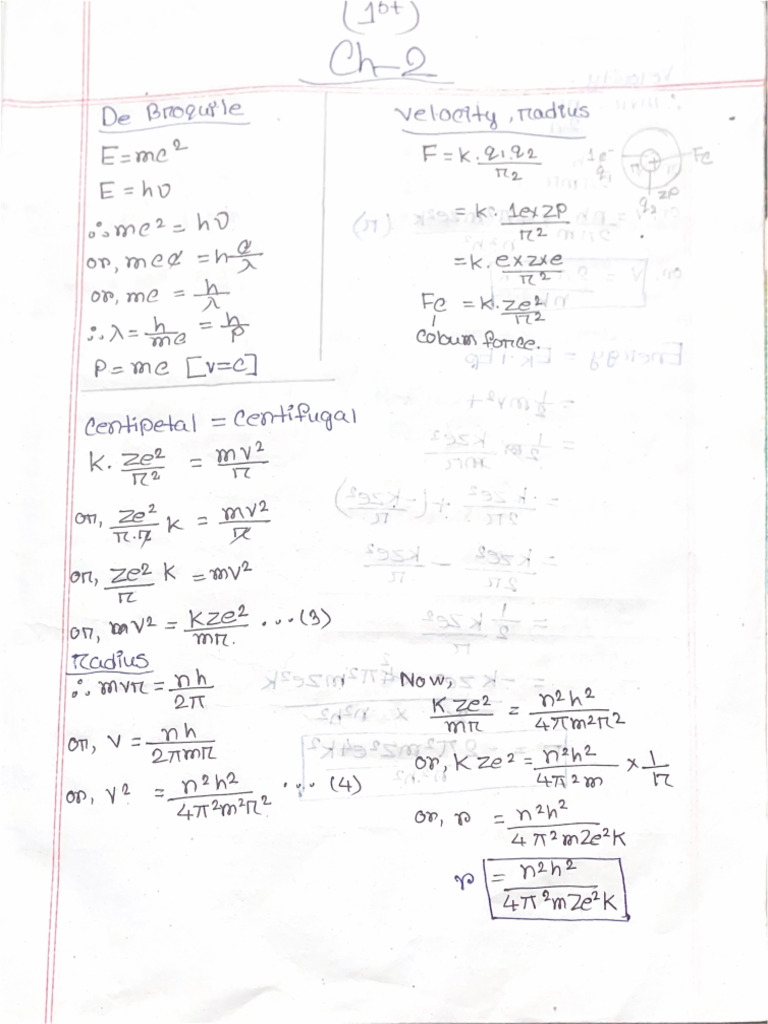 (1st)
Ch-2
De Broquile
E = mc²
E = hυ
∴ mc² = hυ
or, mc¢ = h¢/λ
or, mc = h/λ
∴ λ = h/mc = h/P
P = mc [v=c]
Velocity, radius
F = k. q₁.q₂/r₂
= k. 1e×ZP/r²
= k. e×z×e/r²
Fc = k. ze²/r²
Coloum force.
1e⁻
q₁
Fc
r
ZP
q₂
Centipetal = Centifugal
k. ze²/r² = mv²/r
or, ze²/r.r k = mv²/r
or, ze²/r k = mv²
or, mv² = kze²/mr. ...(3)
Radius
∴ mvr = nh/2π
or, v = nh/2πmr
or, v² = n²h²/4π²m²r² ...(4)
Now,
K ze²/mr = n²h²/4πm²r²
or, K ze² = n²h²/4π²m × 1/r
or, r = n²h²/4π²mZe²K
r = n²h²/4π²mZe²K